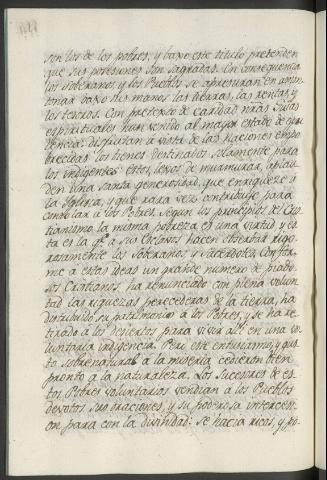 son los de los pobres, y baxo este titulo pretenden
que sus posesiones son sagradas. En consequencia
los Soberanos, y los Pueblos se apresuran en amon
tonar baxo sus manos las tierras, las rentas y
los tesoros. Con pretexto de caridad nras Guias
espirituales han venido al mayor estado de opu
lencia: disfrutan à vista de las Naciones empo
brecidas los bienes destinados solamente para
los indigentes: estos, lexos de murmurar, aplau
den una santa generosidad, que enriquece à
la Iglesia, y que rara vez contribuye para
consolar à los Pobres. Segun los principios del Cris
tianismo la misma pobreza es una virtud, y es
ta es la qe. à sus Esclavos hacen observar rigo
rosamente los Soberanos, y Sacerdotes. Confor
me à estas ideas un grande numero de piado
sos Cristianos ha renunciado con plena volun
tad las riquezas perecederas de la tierra, ha
distribuido su patrimonio à los Pobres, y se ha re
tirado à los Desiertos para vivir alli en una vo
luntaria indigencia. Pero este entusiasmo, y gus
to sobrenatural à la miseria cedieron bien
pronto à la naturaleza. Los Sucesores de es
tos Pobres voluntarios vendian à los Pueblos
devotos sus oraciones, y su poderosa interces
ion para con la divinidad: se hacia ricos, y po